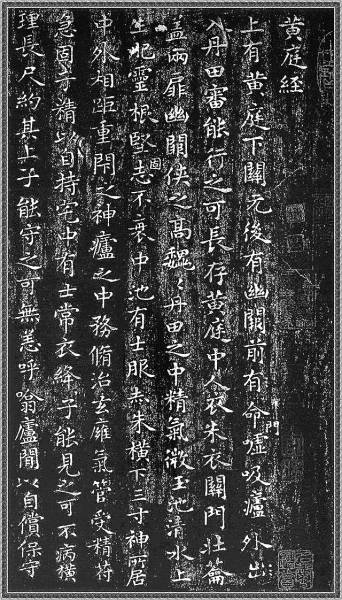 黄庭経
上有黄庭下關元後有幽闕前有命門噓吸廬外出
入丹田審能行之可長存黄庭中人衣朱衣關門壮籥
盖兩扉幽闕侠之高魏〻丹田之中精氣微玉池清水上
生肥靈根堅固志不衰中池有士服赤朱横下三寸神所居
中外相距重閇之神廬之中務脩治玄癕氣管受精符
急固子精以自持宅中有士常衣絳子能見之可不病横
理長尺約其上子能守之可無恙呼噏廬間以自償保守